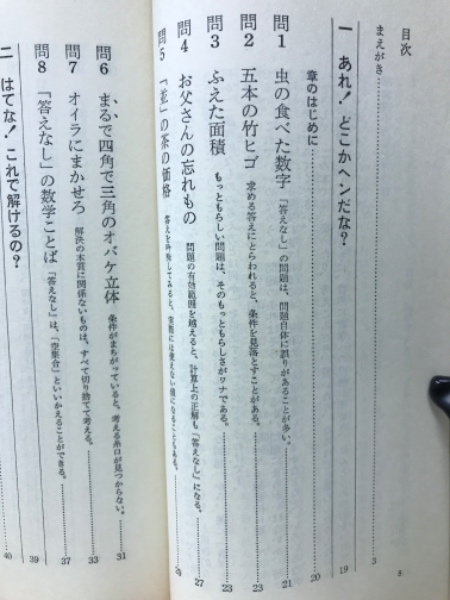 目次
まえがき……3
一 あれ! どこかヘンだな?……19
章のはじめに……20
問1 虫の食べた数字 「答えなし」の問題は、問題自体に誤りがあることが多い。……21
問2 五本の竹ヒゴ 求める答えにとらわれると、条件を見落とすことがある。……23
問3 ふえた面積 もっともらしい問題は、そのもっともらしさがワナである。……23
問4 お父さんの忘れもの 問題の有効範囲を越えると、計算上の正解も「答えなし」になる。……27
問5 「並」の茶の価格 答えを吟味してみると、実際には使えない値になることもある。
問6 まるで四角で三角のオバケ立体 条件がまちがっていると、考える糸口が見つからない。……31
問7 オイラにまかせろ 解決の本質に関係ないものは、すべて切り捨てて考える。……33
問8 「答えなし」の数学ことば 「答えなし」は、「空集合」といいかえることができる。……37
39
二 はてな! これで解けるの?……40